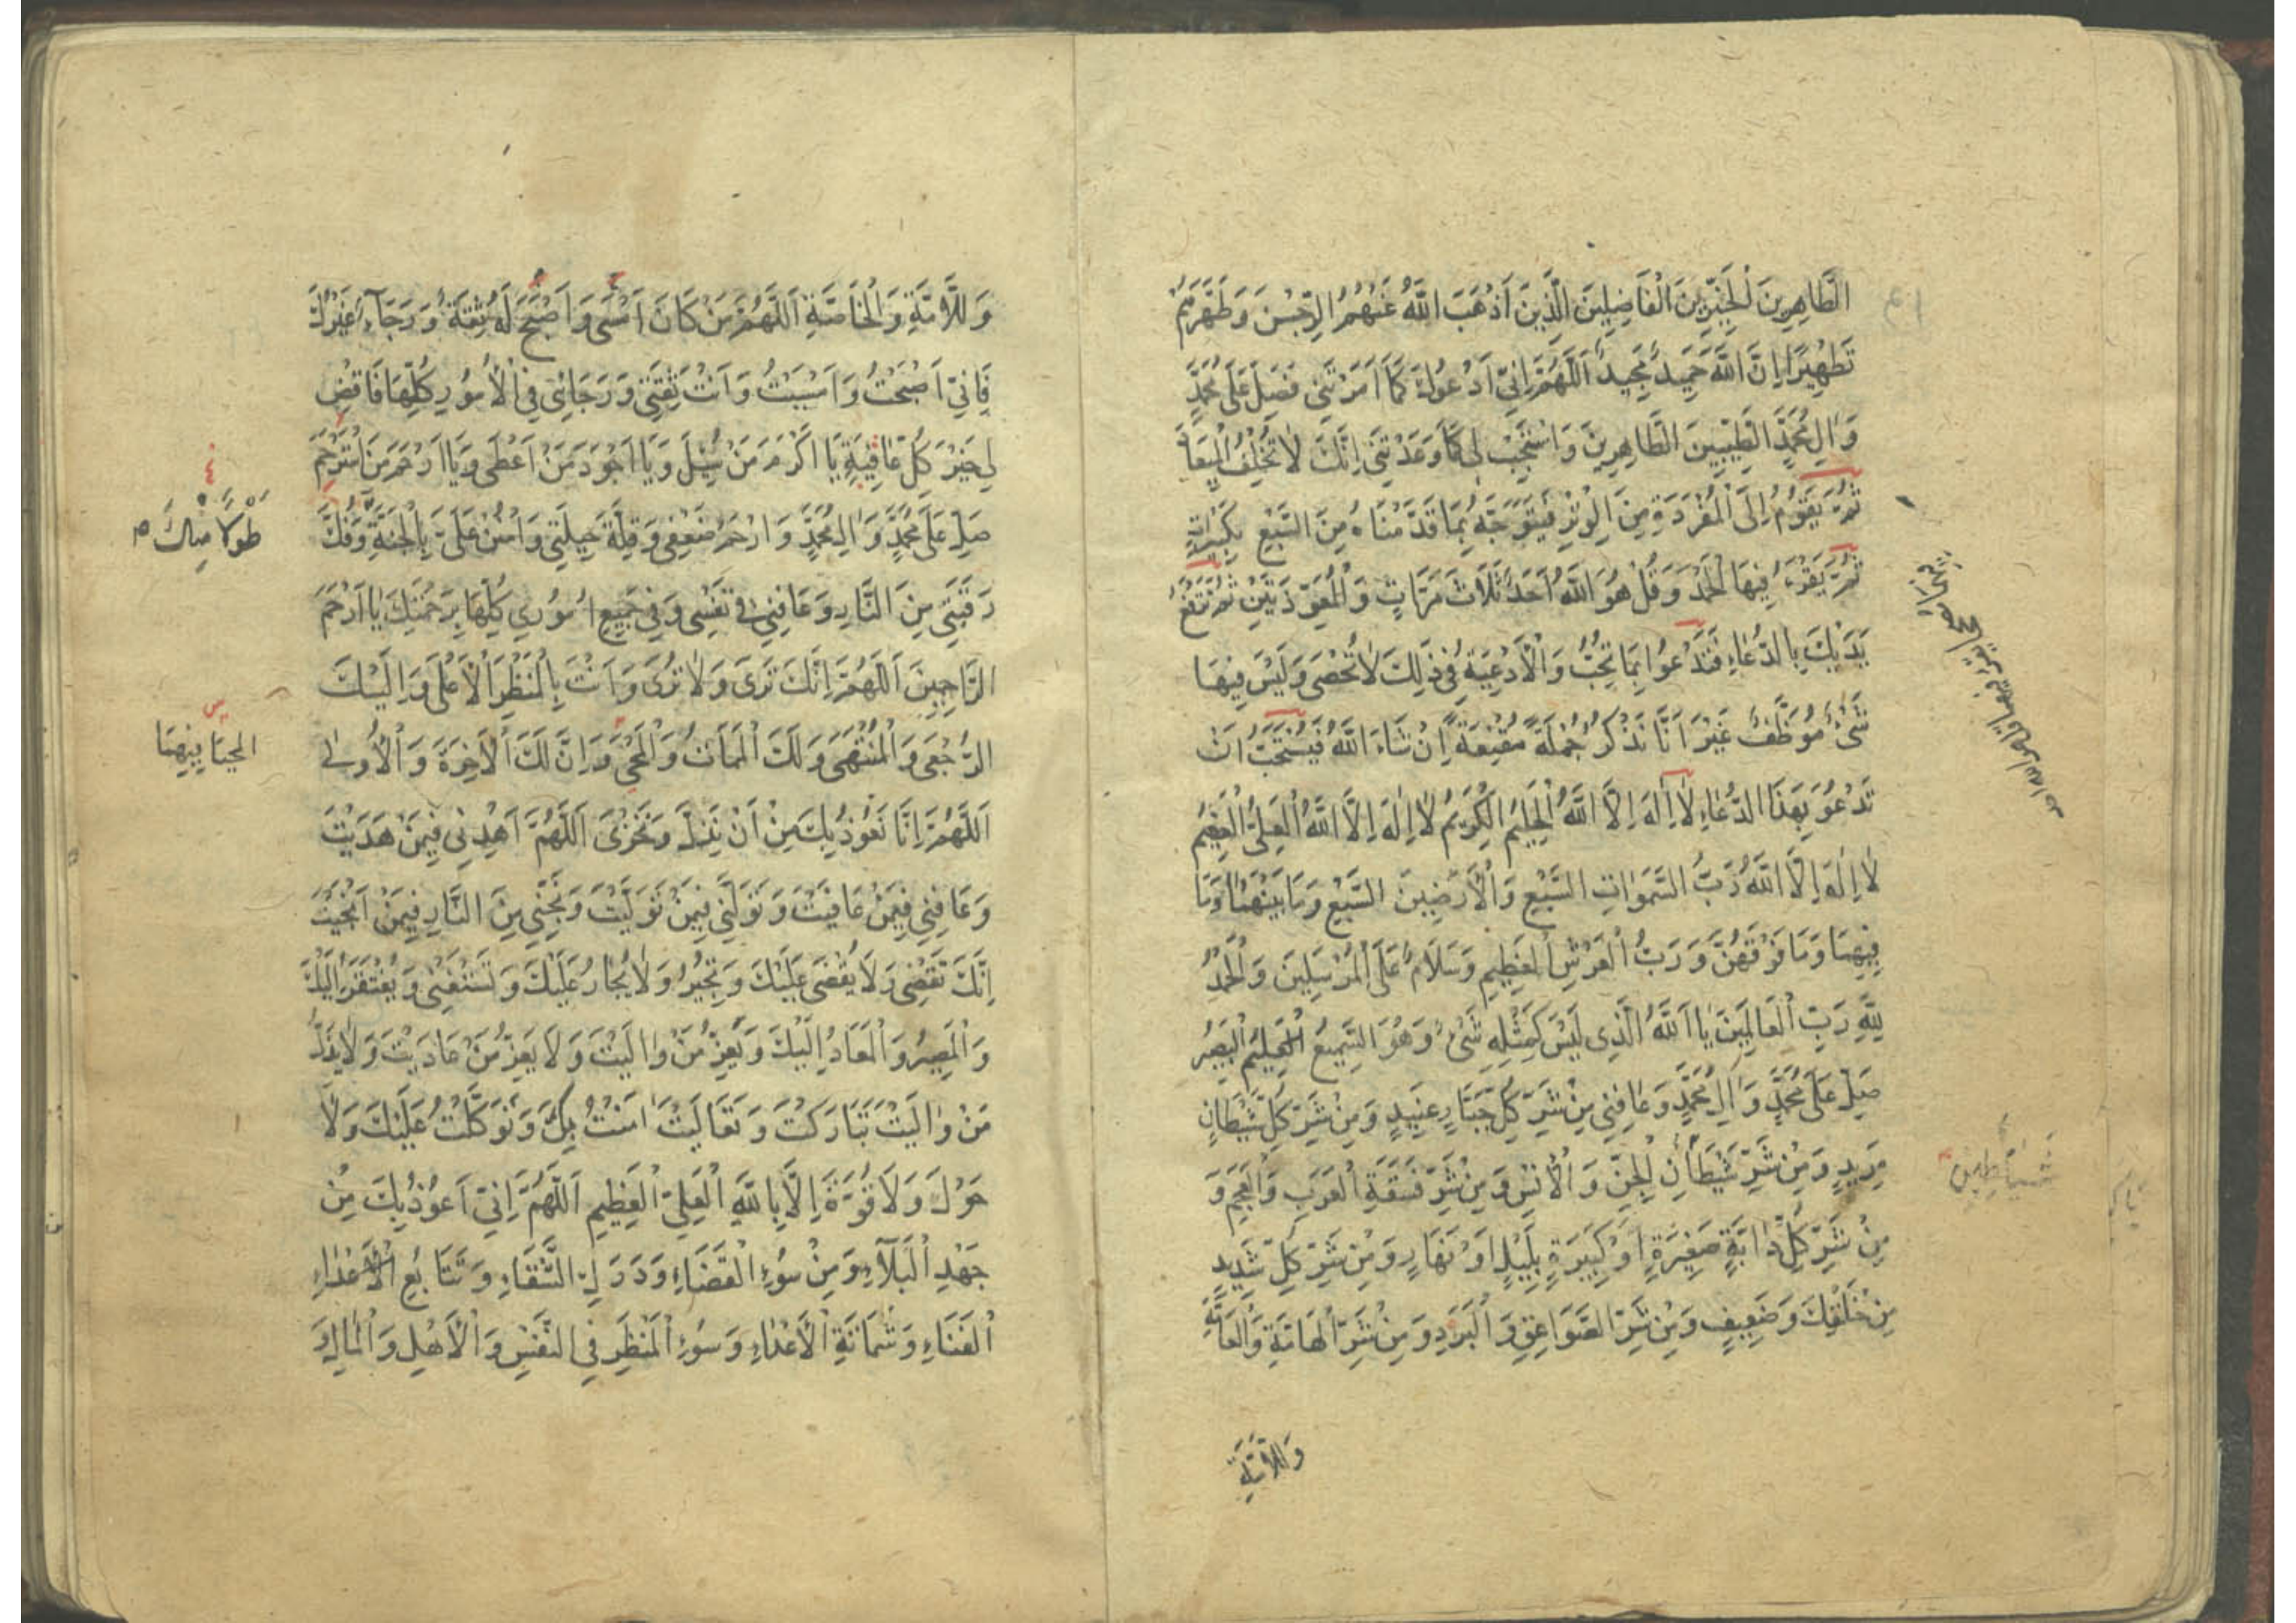 الطَّاهِرِينَ الْخَيِّرِينَ الْفَاضِلِينَ الَّذِينَ اَذْهَبَ اللَّهُ عَنْهُمُ الرِّجْسَ وَطَهَّرَهُمْ
تَطْهِيرًا اِنَّ اللَّهَ حَمِيدٌ مَجِيدٌ اَللَّهُمَّ اِنِّي اَدْعُوكَ كَمَا اَمَرْتَنِي فَصَلِّ عَلَى مُحَمَّدٍ
وَاٰلِ مُحَمَّدٍ الطَّيِّبِينَ الطَّاهِرِينَ وَاسْتَجِبْ لِي كَمَا وَعَدْتَنِي اِنَّكَ لَا تُخْلِفُ الْمِيعَاد
ثُمَّ يَقُومُ اِلَى الْمُفْرَدَةِ مِنَ الْوِتْرِ فَيَتَوَجَّهُ بِمَا قَدَّمْنَاهُ مِنَ السَّبْعِ تَكْبِيرَاتٍ
ثُمَّ يَقْرَءُ فِيهَا الْحَمْدَ وَقُلْ هُوَ اللَّهُ اَحَدٌ ثَلَاثَ مَرَّاتٍ وَالْمُعَوَّذَتَيْنِ ثُمَّ تَرْفَعُ
يَدَيْكَ بِالدُّعَاءِ فَتَدْعُوا بِمَا تُحِبُّ وَالْاَدْعِيَةُ فِي ذٰلِكَ لَا تُحْصَى وَلَيْسَ فِيهَا
شَىْءٌ مُوَظَّفٌ غَيْرَ اَنَّا نَذْكُرُ جُمْلَةً مُقْنِعَةً اِنْ شَاءَ اللَّهُ فَيُسْتَحَبُّ اَنْ
تَدْعُوَ بِهَذَا الدُّعَاءِ لَا اِلٰهَ اِلَّا اللَّهُ الْحَلِيمُ الْكَرِيمُ لَا اِلٰهَ اِلَّا اللَّهُ الْعَلِيُّ الْعَظِيمُ
لَا اِلٰهَ اِلَّا اللَّهُ رَبُّ السَّمَوَاتِ السَّبْعِ وَالْاَرَضِينَ السَّبْعِ وَمَا بَيْنَهُمَا وَمَا
فِيهِمَا وَمَا فَوْقَهُنَّ وَرَبُّ الْعَرْشِ الْعَظِيمِ وَسَلَامٌ عَلَى الْمُرْسَلِينَ وَالْحَمْدُ
لِلّٰهِ رَبِّ الْعَالَمِينَ يَا اَللَّهُ الَّذِى لَيْسَ كَمِثْلِهِ شَىْءٌ وَهُوَ السَّمِيعُ الْعَلِيمُ الْبَصِيرُ
صَلِّ عَلَى مُحَمَّدٍ وَاٰلِ مُحَمَّدٍ وَعَافِنِي مِنْ شَرِّ كُلِّ جَبَّارٍ عَنِيدٍ وَمِنْ شَرِّ كُلِّ شَيْطَانٍ
مَرِيدٍ وَمِنْ شَرِّ شَيْطَانِ الْجِنِّ وَالْاِنْسِ وَمِنْ شَرِّ فَسَقَةِ الْعَرَبِ وَالْعَجَمِ وَ
مِنْ شَرِّ كُلِّ دَابَّةٍ صَغِيرَةٍ اَوْ كَبِيرَةٍ بِلَيْلٍ اَوْ نَهَارٍ وَمِنْ شَرِّ كُلِّ شَدِيدٍ
مِنْ خَلْقِكَ وَضَعِيفٍ وَمِنْ شَرِّ الصَّوَاعِقِ وَالْبَرَدِ وَمِنْ شَرِّ الْهَامَّةِ وَالْعَامَّةِ
شَيَاطِينِ
وَاللَّامَّةِ
وَاللَّامَّةِ وَالْخَاصَّةِ اَللَّهُمَّ مَنْ كَانَ اَمْسَى وَاَصْبَحَ لَهُ ثِقَةٌ وَرَجَآءٌ غَيْرُكَ
فَاِنِّي اَصْبَحْتُ وَاَمْسَيْتُ وَاَنْتَ ثِقَتِي وَرَجَائِى فِي الْاُمُورِ كُلِّهَا فَاقْضِ
لِي خَيْرَ كُلِّ عَافِيَةٍ يَا اَكْرَمَ مَنْ سُئِلَ وَيَا اَجْوَدَ مَنْ اَعْطَى وَيَا اَرْحَمَ مَنِ اسْتُرْحِمَ
صَلِّ عَلَى مُحَمَّدٍ وَاٰلِ مُحَمَّدٍ وَارْحَمْ ضَعْفِي وَقِلَّةَ حِيلَتِي وَامْنُنْ عَلَىَّ بِالْجَنَّةِ وَفُكَّ
طَوْلًا مِنْكَ
رَقَبَتِي مِنَ النَّارِ وَعَافِنِي فِي نَفْسِى وَفِي جَمِيعِ اُمُورِي كُلِّهَا بِرَحْمَتِكَ يَا اَرْحَمَ
الرَّاحِمِينَ اَللَّهُمَّ اِنَّكَ تَرَى وَلَا تُرَى وَاَنْتَ بِالْمَنْظَرِ الْاَعْلَى وَاِلَيْكَ
الرُّجْعَى وَالْمُنْتَهَى وَلَكَ الْمَمَاتُ وَالْمَحْيَ وَاِنَّ لَكَ الْاٰخِرَةَ وَالْاُولٰى
اَللَّهُمَّ اِنَّا نَعُوذُ بِكَ مِنْ اَنْ نَذِلَّ وَنَخْزَى اَللَّهُمَّ اهْدِنِي فِيمَنْ هَدَيْتَ
وَعَافِنِي فِيمَنْ عَافَيْتَ وَتَوَلَّنِي فِيمَنْ تَوَلَّيْتَ وَنَجِّنِي مِنَ النَّارِ فِيمَنْ اَنْجَيْتَ
اِنَّكَ تَقْضِى وَلَا يُقْضَى عَلَيْكَ وَتُجِيرُ وَلَا يُجَارُ عَلَيْكَ وَتَسْتَغْنِى وَيُفْتَقَرُ اِلَيْكَ
وَالْمَصِيرُ وَالْمَعَادُ اِلَيْكَ وَيَعِزُّ مَنْ وَالَيْتَ وَلَا يَعِزُّ مَنْ عَادَيْتَ وَلَا يَذِلُّ
مَنْ وَالَيْتَ تَبَارَكْتَ وَتَعَالَيْتَ اٰمَنْتُ بِكَ وَتَوَكَّلْتُ عَلَيْكَ وَلَا
حَوْلَ وَلَا قُوَّةَ اِلَّا بِاللَّهِ الْعَلِيِّ الْعَظِيمِ اَللَّهُمَّ اِنِّي اَعُوذُ بِكَ مِنْ
جَهْدِ الْبَلَآءِ وَمِنْ سُوءِ الْقَضَاءِ وَدَرَكِ الشَّقَاءِ وَتَتَابُعِ
الْفَنَاءِ وَشَمَاتَةِ الْاَعْدَاءِ وَسُوءِ الْمَنْظَرِ فِي النَّفْسِ وَالْاَهْلِ وَالْمَالِ وَ